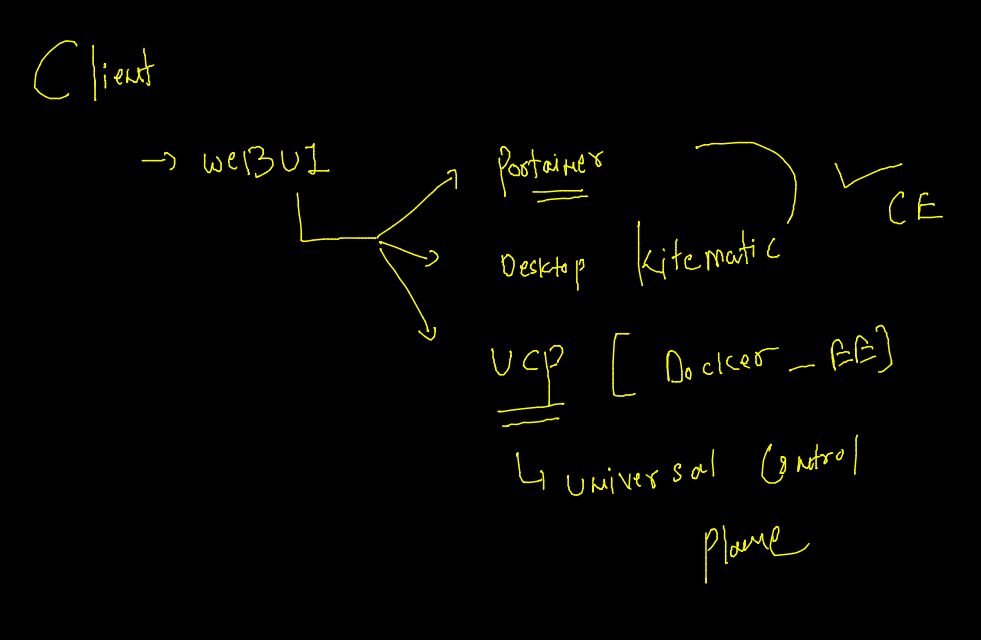 Client
→ WeBUI
Portainer
CE
Desktop Kitematic
UCP [ Docker - EE]
↳ Universal Control
Plane